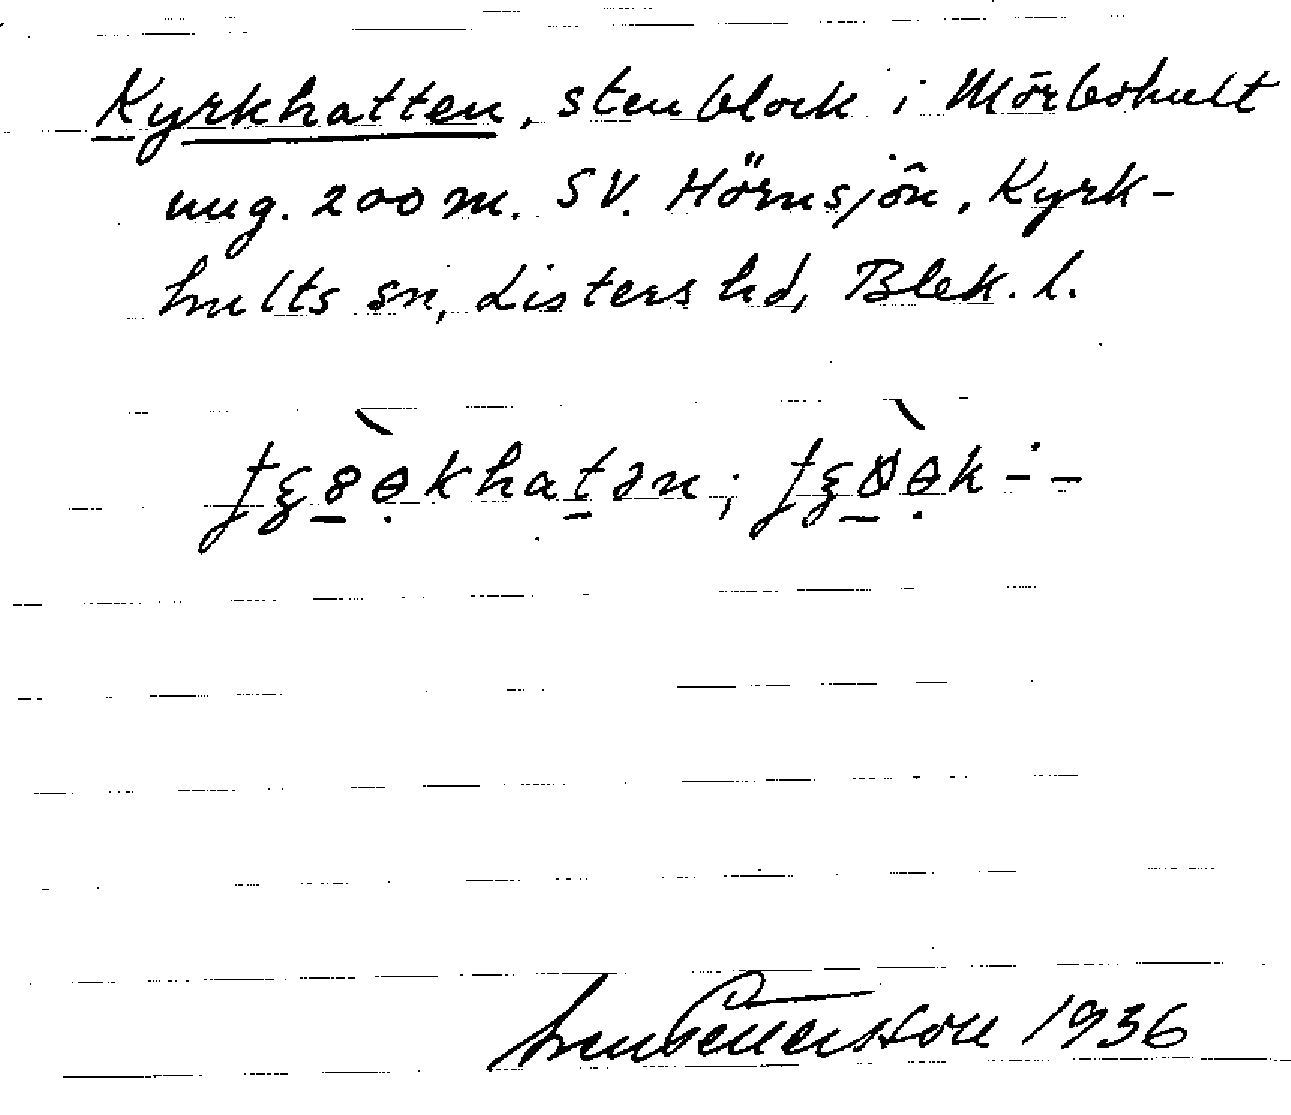 Kyrkhatten, stenblock i Mörbohult
ung. 200 m. SV. Hörnsjön, Kyrk-
hults sn, Listers hd, Blek. l.
1936